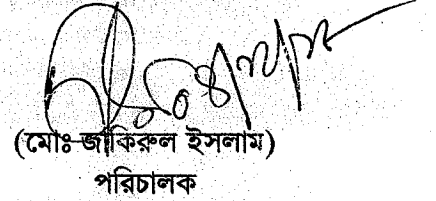 (মোঃ জাকিরুল ইসলাম)
পরিচালক